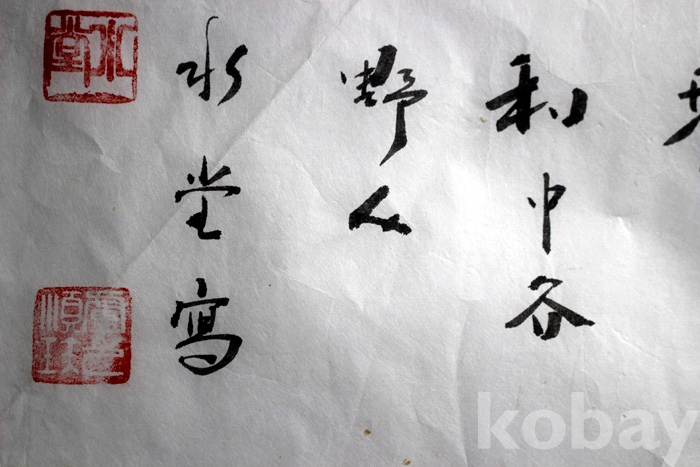 利中谷
野人
水堂寫
水堂
kobay